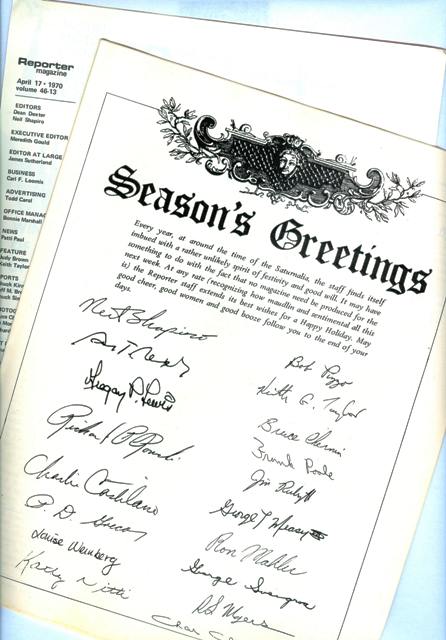 Reporter
magazine
April 17 • 1970
volume 46-13
EDITORS
Dean Dexter
Neil Shapiro
EXECUTIVE EDITOR
Meredith Gould
EDITOR AT LARGE
James Sutherland
BUSINESS
Carl F. Loomis
ADVERTISING
Todd Carol
OFFICE MANAG
Bonnie Marshall
NEWS
Patti Paul
FEATURE
Judy Brown
Keith Taylor
Season's Greetings
Every year, at around the time of the Saturnalia, the staff finds itself
imbued with a rather unlikely spirit of festivity and good will. It may have
something to do with the fact that no magazine need be produced for the
next week. At any rate (recognizing how maudlin and sentimental all this
is) the Reporter staff extends its best wishes for a Happy Holiday. May
good cheer, good women and good booze follow you to the end of your
days.
Neil Shapiro
Gregory P. Lewis
Charlie
Louise Weinberg
Kathy Nitti
Bob
Keith G. Taylor
Bruce
Frank Poole
Jim
George T
Ron Mahler
George
Myers